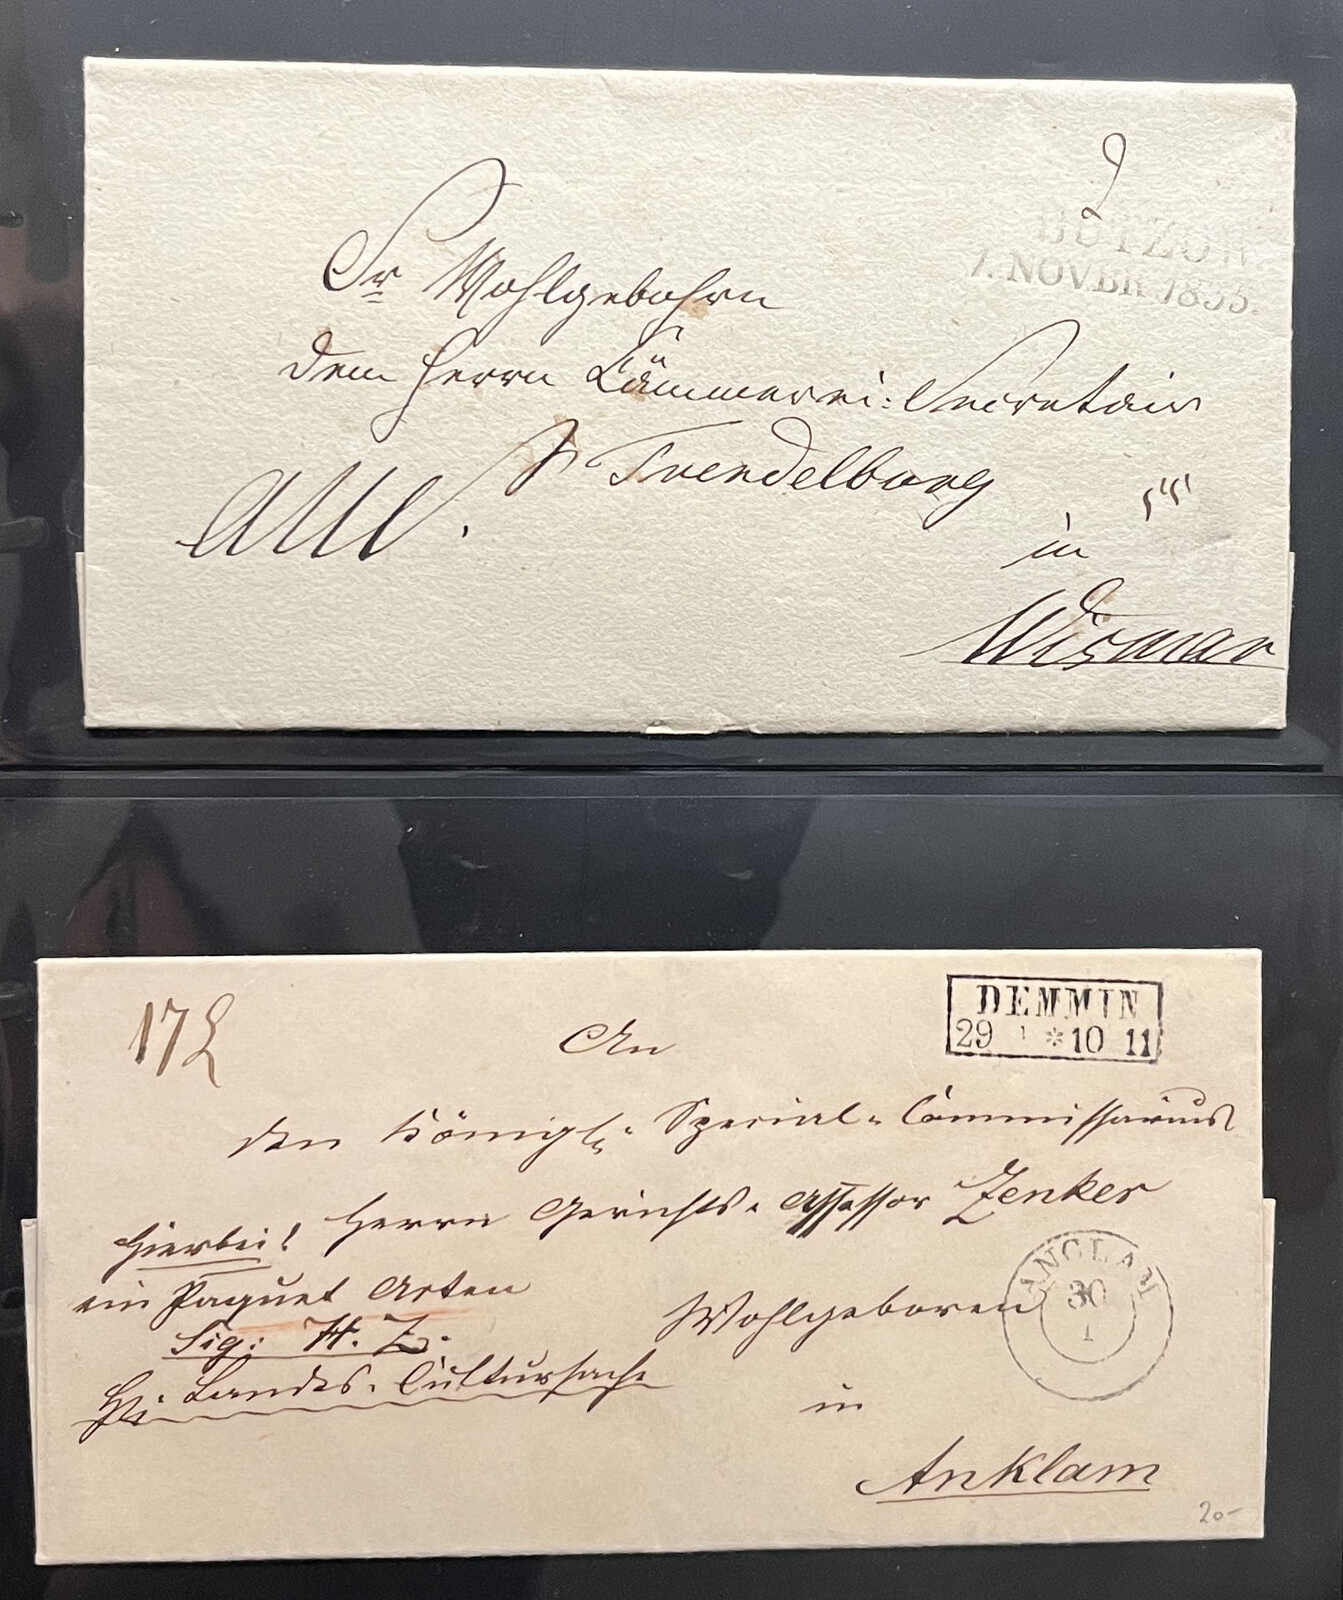 BÜTZOW
7. NOVBR 1835.
Sr Wohlgebohrn
dem Herrn Cämmerei: Secretair
Trendelburg
in
Wismar
172
DEMMIN
29 1 * 10 11
An
den Königl. Special-Commissarius
Herrn Gerichts-Assessor Zenker
Wohlgeboren
in
Anklam
Hierbei!
ein Paquet Acten
Sig: H. Z.
Landes-Cultursache
ANCLAM
30
1
20-